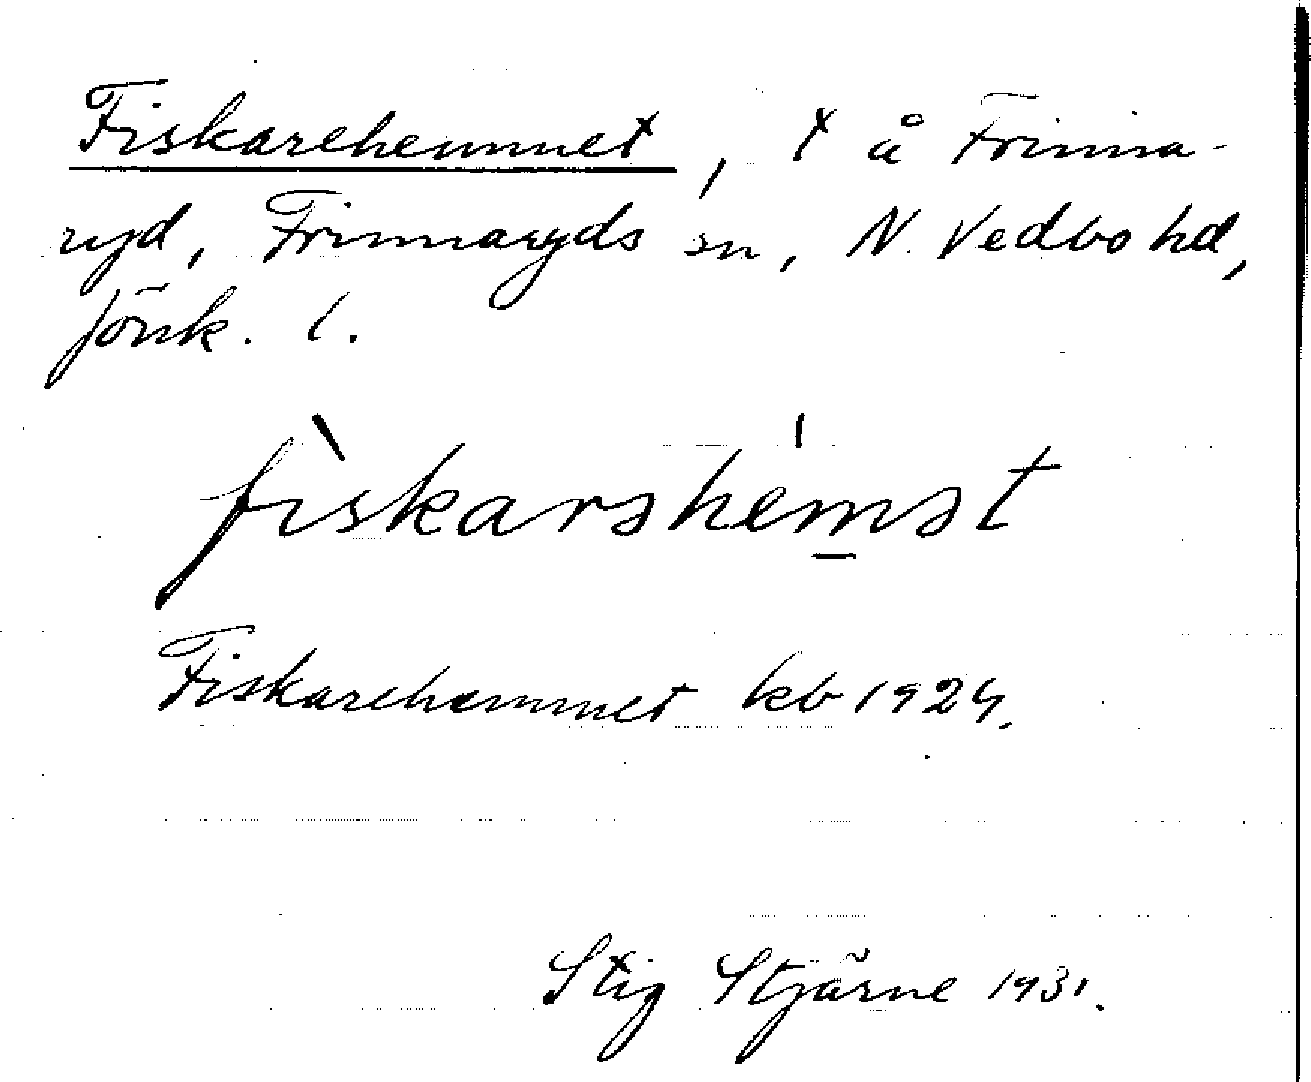 Fiskarehemmet, t å Frinna-
ryd, Frinnaryds sn, N. Vedbo hd,
Jönk. l.
fìskarəhemət
Fiskarehemmet kb 1924.
Stig Stjärne 1931.